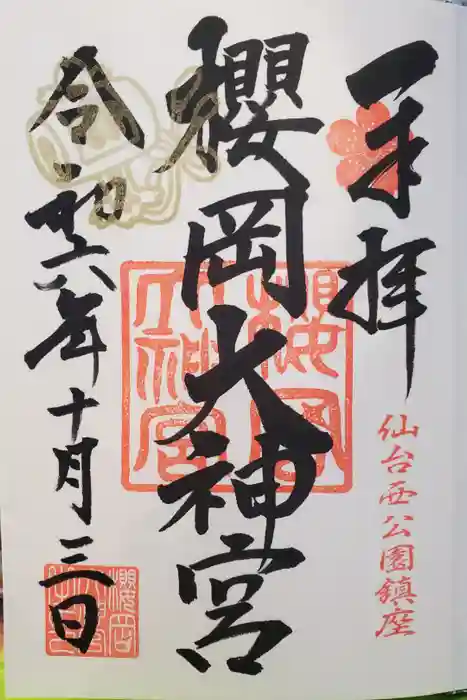 奉拝
仙台西公園鎮座
櫻岡大神宮
櫻岡大神宮
令和六年十月三日